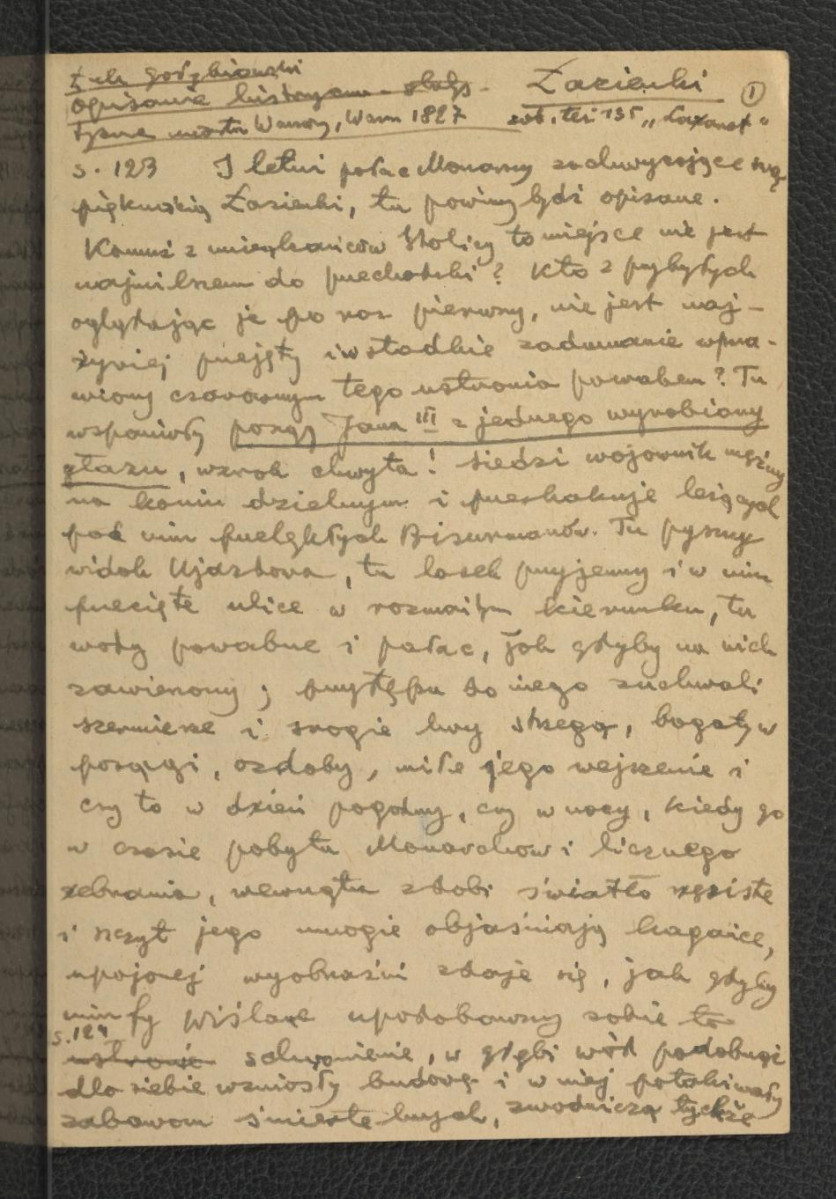 Łuk. Gołębiowski Łazienki ①
opisanie historyczno-staty-
tyczne miasta Warszawy, Warsz 1827 zob. też 135 "Laxenet"
s. 123 I letni pałac Monarszy zachwycające swą
pięknością Łazienki, tu powinny bydź opisane.
Komuż z mieszkańców Stolicy to miejsce nie jest
najmilszem do przechadzki? Kto z przybyłych
oglądając je po raz pierwszy, nie jest naj-
żywiej przejęty i w słodkie zadumanie wpra-
wiony czarownym tego ustronia powabem? Tu
wspaniały posąg Jana III z jednego wyrobiony
głazu, wzrok chwyta! Siedzi wojownik mężny
na koniu dzielnym i przeskakuje leżących
pod nim przelękłych Bisurmanów. Tu pyszny
widok Ujazdowa, tu lasek przyjemny i w nim
przecięte ulice w rozmaitym kierunku, tu
wody powabne i pałac, jak gdyby na nich
zawieszony; przystępu do niego zuchwali
szermierze i srogie lwy strzegą, bogaty w
posągi, ozdoby, miłe jego wejrzenie i
czy to w dzień pogodny, czy w nocy, kiedy go
w czasie pobytu Monarchów i licznego
zebrania, wewnątrz zdobi światło rzęsiste
i szczyt jego mnogie objaśniają kagańce,
upojonej wyobraźni zdaje się, jak gdyby
nimfy Wiślane upodobawszy sobie to
s. 124
ustronie schronienie, w głębi wód podobnąż
dla siebie wzniosły budowę i w niej potakiwały
zabawom śmiertelnych, zwodniczą tychże